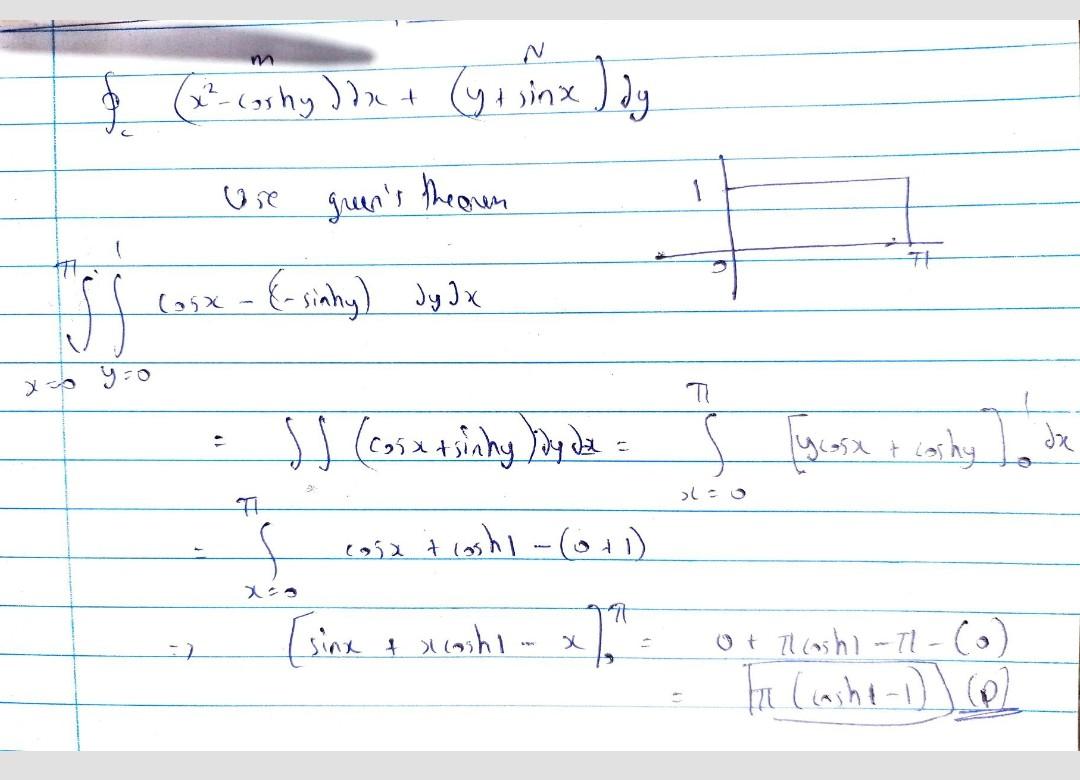 m N
∮c (x² - coshy) dx + (y + sinx) dy
Use green's theorem
1
0 π
π 1
∫ ∫ cosx - (-sinhy) dy dx
x=0 y=0
= ∫∫ (cosx + sinhy) dy dx = ∫ π x=0 [ycosx + coshy]₀¹ dx
= ∫ π x=0 cosx + cosh1 - (0+1)
=> [sinx + xcosh1 - x]₀^π = 0 + πcosh1 - π - (0)
= π(cosh1 - 1) (D)